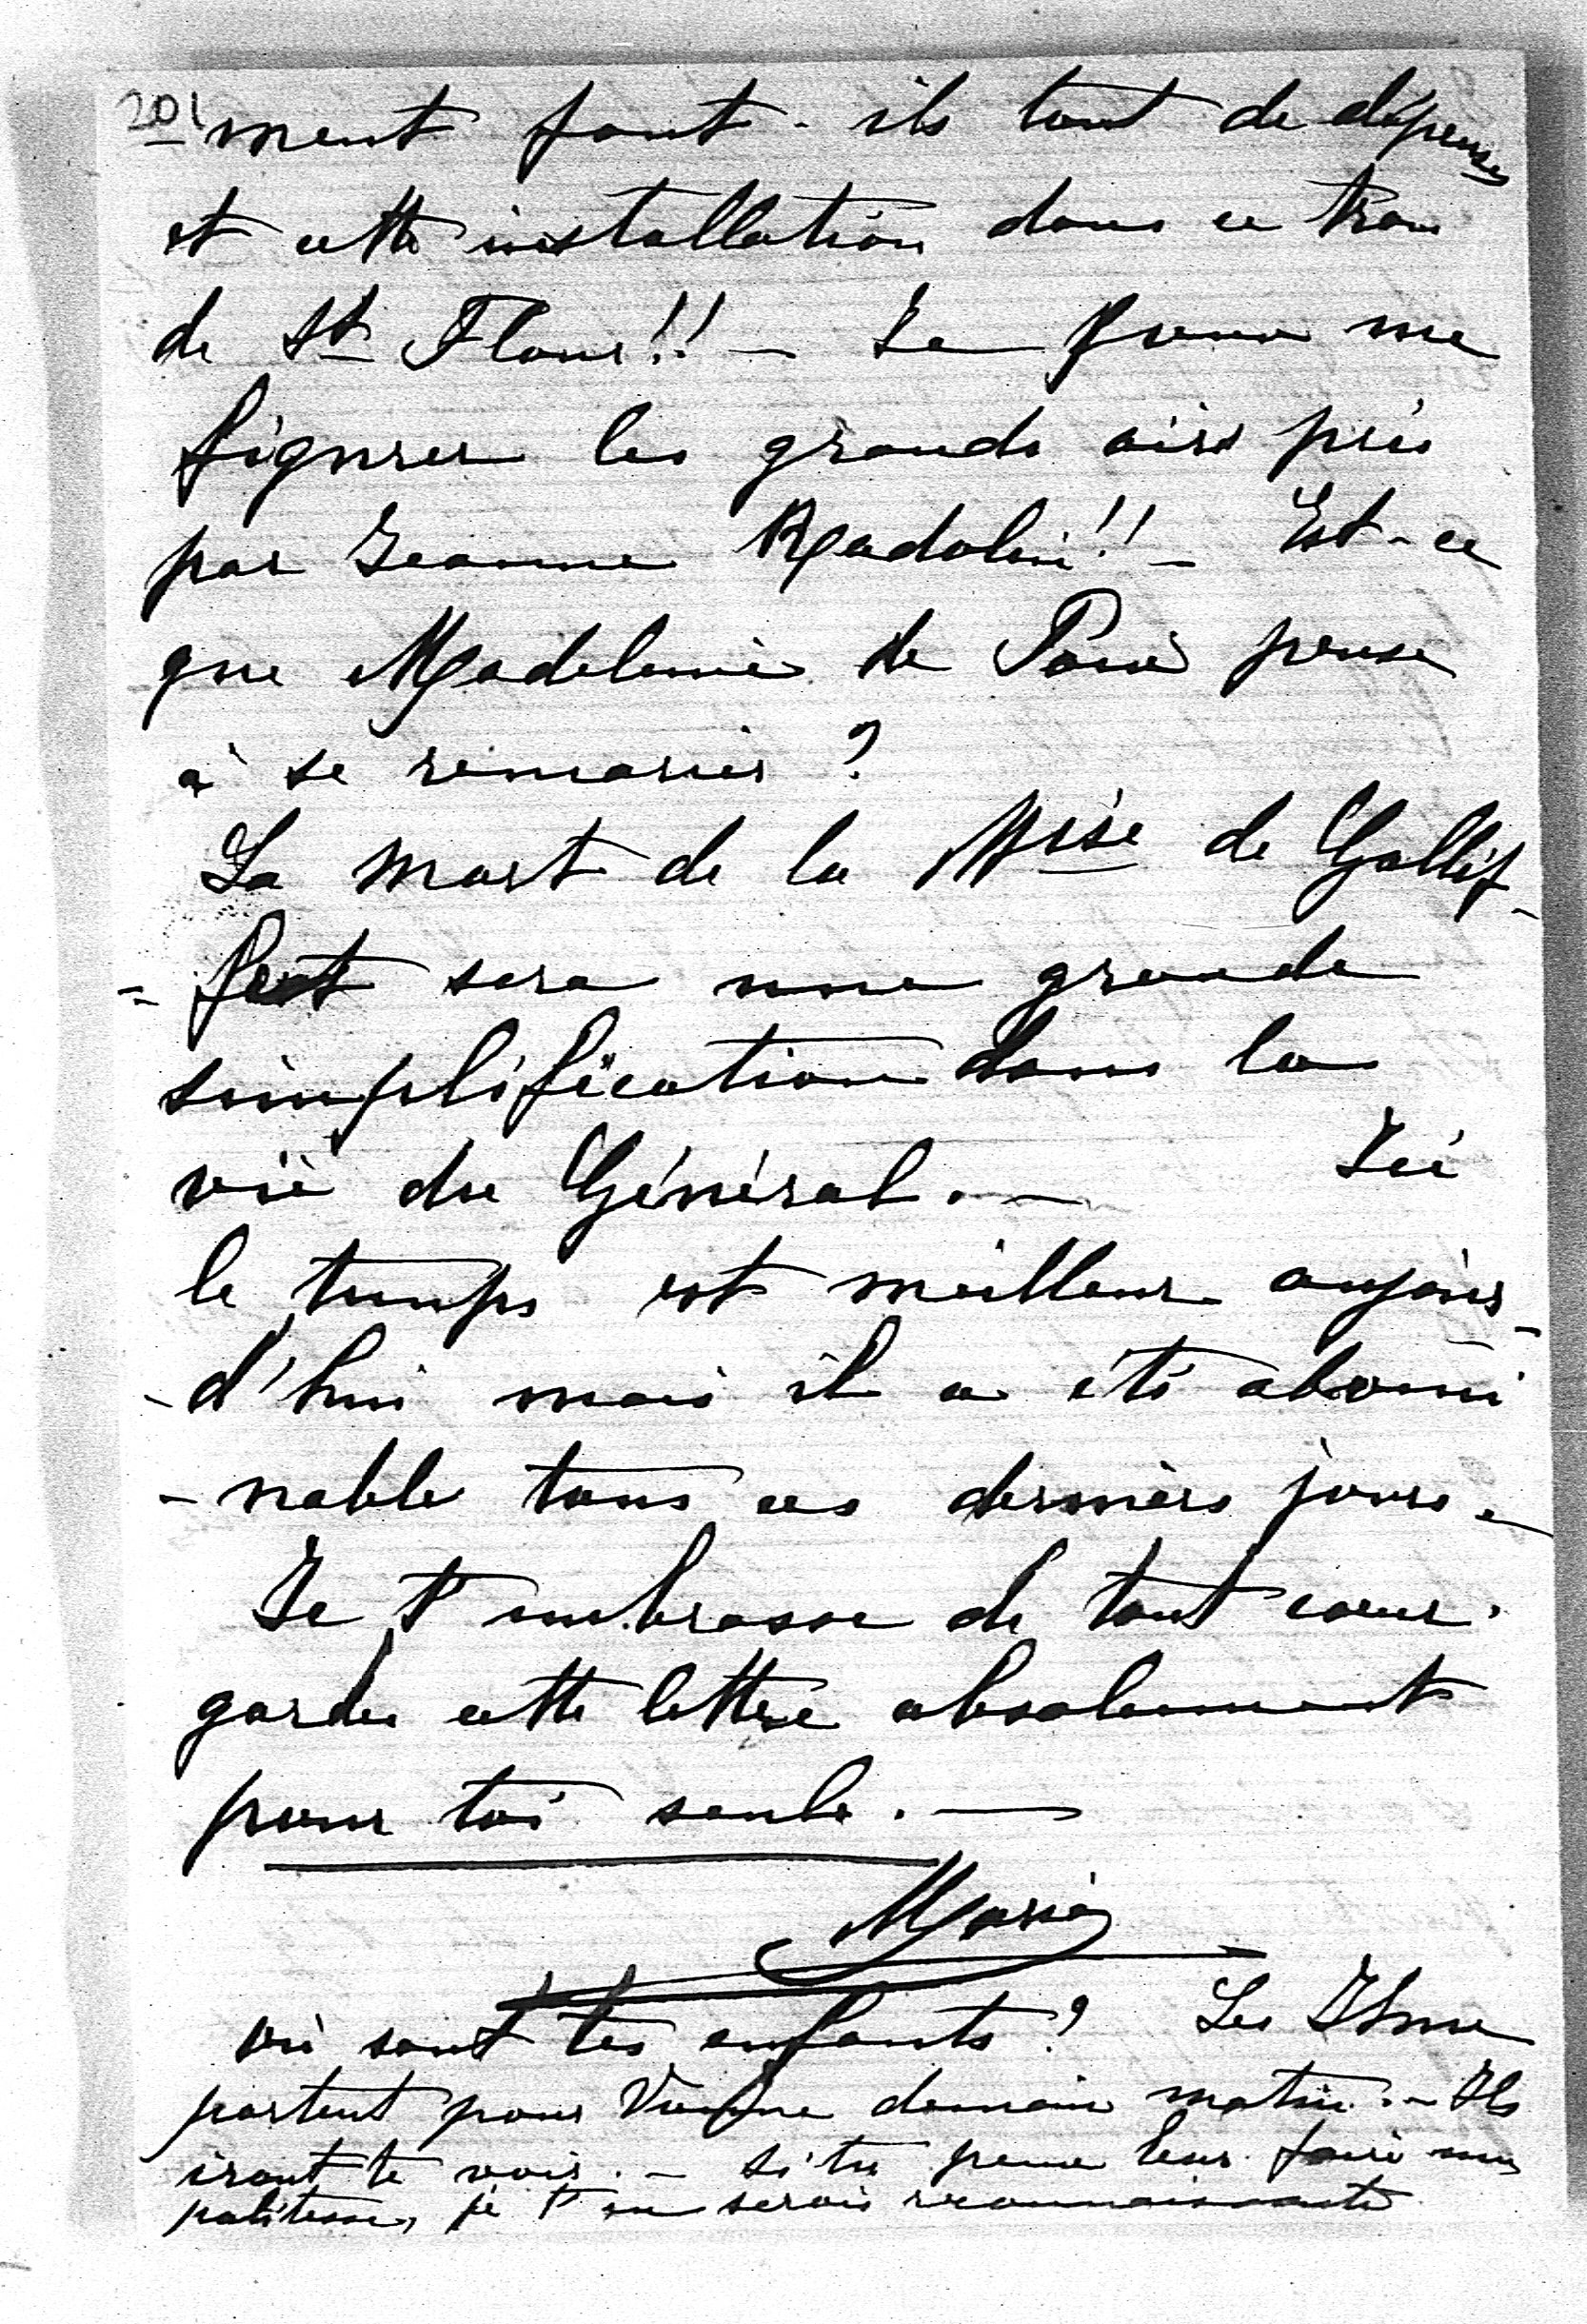 201
-ment font-ils tant de dépenses
et cette installation dans ce trou
de St Flour!! - Je peux me
figurer les grands airs pris
par Jeanne Radolin!! - Est-ce
que Madeleine de pense
à se remarier?
La mort de la Mise de Gallif-
-fet sera une grande
simplification dans la
vie du Général. - Ici
le temps est meilleur aujour-
-d'hui mais il a été abomi
-nable tous ces derniers jours. -
Je t'embrasse de tout coeur.
garde cette lettre absolument
pour toi seule. -
Marie
où sont tes enfants? Les
partent pour Vienne demain matin. - Ils
iront te voir. - Si tu peux leur faire une
politesse, je t'en serais reconnaissante